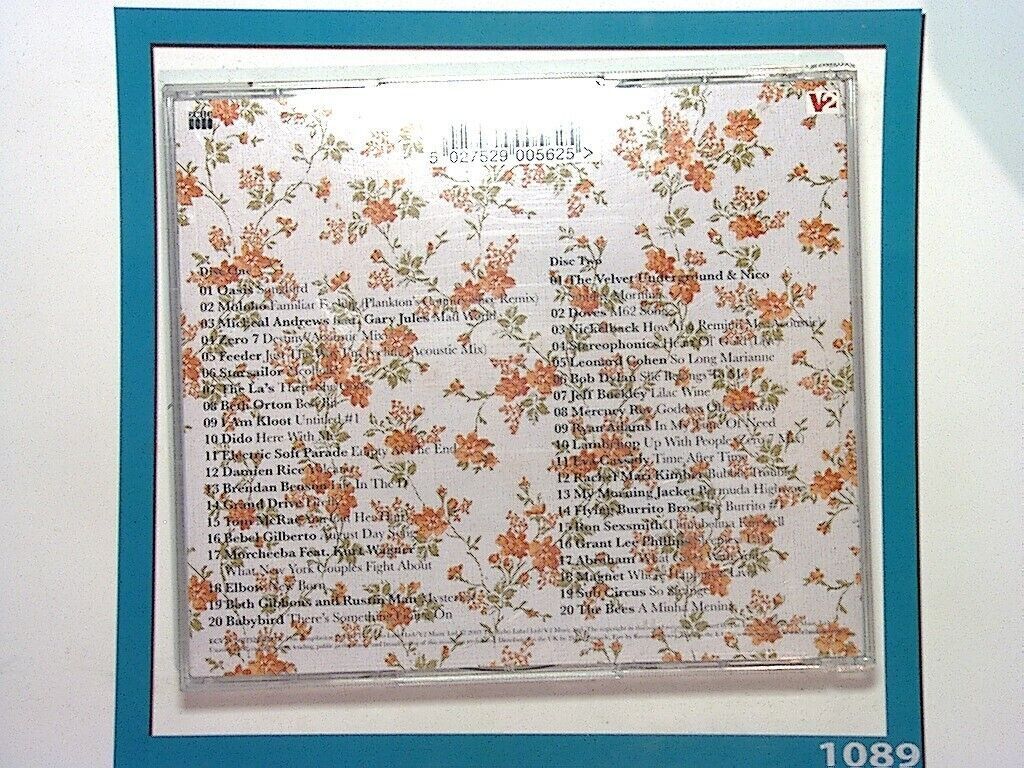 echo
V2
5 027529 005625 >
Disc One
01 Oasis Songbird
02 Moloko Familiar Feeling (Plankton's Remix)
03 Micheal Andrews feat. Gary Jules Mad World
04 Zero 7 Destiny (Acoustic Mix)
05 Feeder Just The Way I'm Feeling (Acoustic Mix)
06 Starsailor Alcoholic
07 The La's There She Goes
08 Beth Orton
09 I Am Kloot Untitled #1
10 Dido Here With Me
11 Electric Soft Parade Empty At The End
12 Damien Rice Volcano
13 Brendan Benson Life In The D
14 Grand Drive
15 Tom McRae You Cut Her Hair
16 Bebel Gilberto August Day Song
17 Morcheeba Feat. Kurt Wagner
What New York Couples Fight About
18 Elbow New Born
19 Beth Gibbons and Rustin Man Mysteries
20 Babybird There's Something Going On
Disc Two
01 The Velvet Underground & Nico
Sunday Morning
02 Doves M62 Song
03 Nickelback How You Remind Me (Acoustic)
04 Stereophonics Heart Of Gold (Live)
05 Leonard Cohen So Long Marianne
06 Bob Dylan She Belongs To Me
07 Jeff Buckley Lilac Wine
08 Mercury Rev Goddess On A Hiway
09 Ryan Adams In My Time Of Need
10 Lambchop Up With People (Zero 7 Mix)
11 Eva Cassidy Time After Time
12 Rachel Mari Kimber Bubble Trouble
13 My Morning Jacket Bermuda Highway
14 Flying Burrito Bros Hot Burrito #1
15 Ron Sexsmith Thumbelina Farewell
16 Grant Lee Phillips
17 Abraham
18 Magnet Where Happiness Lives
19 Sub Circus So Strange
20 The Bees A Minha Menina
1089